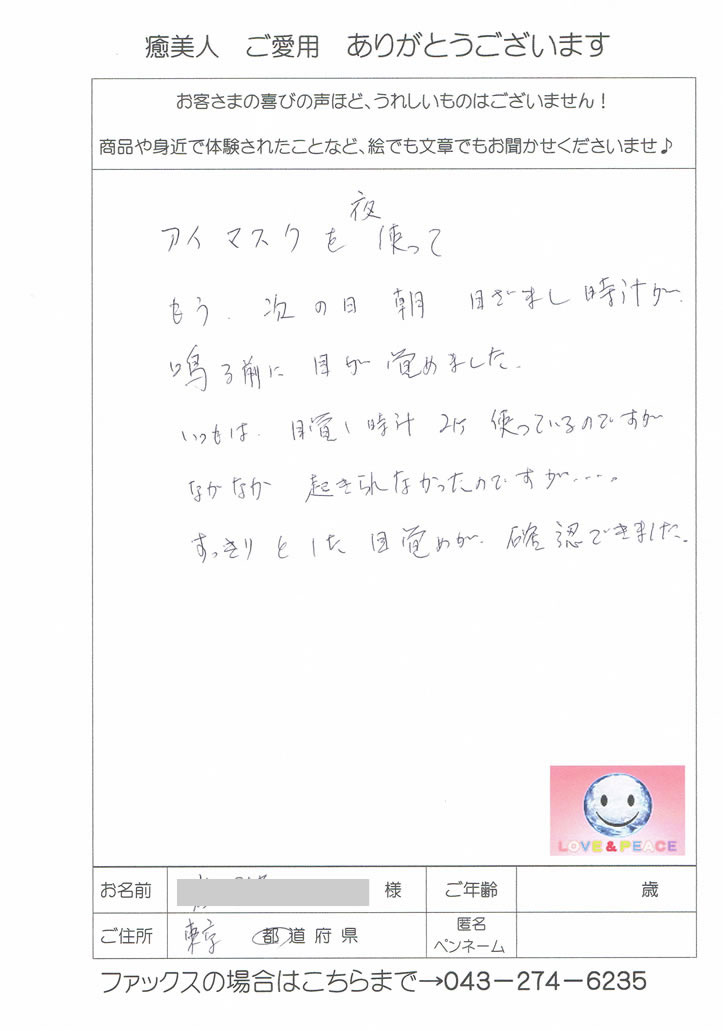 癒美人 ご愛用 ありがとうございます
お客さまの喜びの声ほど、うれしいものはございません!
商品や身近で体験されたことなど、絵でも文章でもお聞かせくださいませ♪
アイマスクを夜使って
もう、次の日 朝 目ざまし時計が、
鳴る前に 目が覚めました。
いつもは、目覚し時計 2ケ 使っているのですが
なかなか 起きられなかったのですが……。
すっきりとした目覚めが、確認できました。
LOVE & PEACE
お名前 様 ご年齢 歳
ご住所 東京 都道府県 匿名ペンネーム
ファックスの場合はこちらまで→043-274-6235